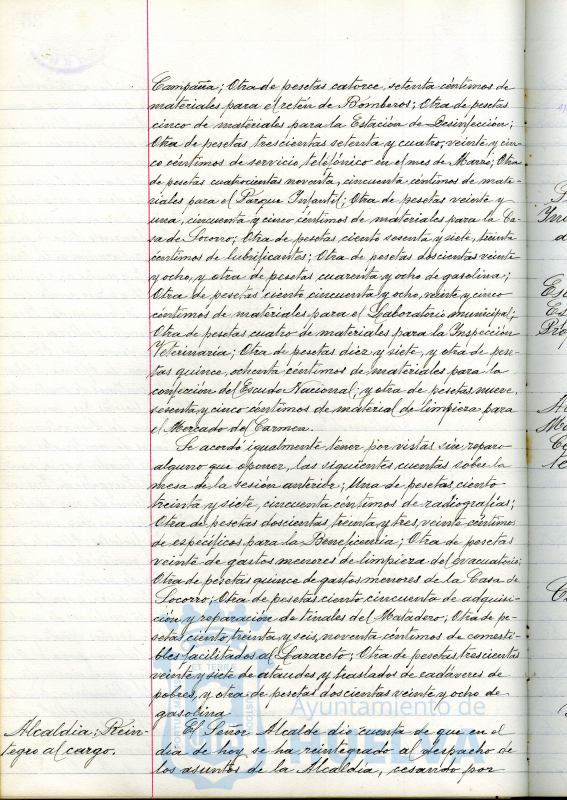 Campaña; Otra de pesetas catorce, setenta céntimos de
materiales para el retén de Bomberos; Otra de pesetas
cinco de materiales para la Estación de Desinfección;
Otra de pesetas trescientas setenta y cuatro, veinte y cin-
co céntimos de servicio telefónico en el mes de Marzo; Otra
de pesetas cuatrocientas noventa, cincuenta céntimos de mate-
riales para el Parque Infantil; Otra de pesetas veinte y
una, cincuenta y cinco céntimos de materiales para la Ca-
sa de Socorro; Otra de pesetas ciento sesenta y siete, treinta
céntimos de lubrificantes; Otra de pesetas doscientas veinte
y ocho, y otra de pesetas cuarenta y ocho de gasolina;
Otra de pesetas ciento cincuenta y ocho, veinte y cinco
céntimos de materiales para el Laboratorio municipal;
Otra de pesetas cuatro de materiales para la Inspección
Veterinaria; Otra de pesetas diez y siete, y otra de pese-
tas quince, ochenta céntimos de materiales para la
confección del Escudo Nacional; y otra de pesetas nueve,
sesenta y cinco céntimos de material de limpieza para
el Mercado del Carmen.
Se acordó igualmente tener por vistas sin reparo
alguno que oponer, las siguientes cuentas sobre la
mesa de la sesión anterior; Una de pesetas ciento
treinta y siete, cincuenta céntimos de radiografías;
Otra de pesetas doscientas treinta y tres, veinte céntimos
de específicos para la Beneficencia; Otra de pesetas
veinte de gastos menores de limpieza del evacuatorio;
Otra de pesetas quince de gastos menores de la Casa de
Socorro; Otra de pesetas ciento cincuenta de adquisi-
ción y reparación de tinales del Matadero; Otra de pe-
setas ciento treinta y seis, noventa céntimos de comesti-
bles facilitados al Lazareto; Otra de pesetas trescientas
veinte y siete de ataudes y traslados de cadáveres de
pobres, y otra de pesetas doscientas veinte y ocho de
gasolina.
Alcaldía; Rein-
tegro al cargo.
El Señor Alcalde dio cuenta de que en el
día de hoy se ha reintegrado al despacho de
los asuntos de la Alcaldía, cesando por
Ayuntamiento de
HUELVA